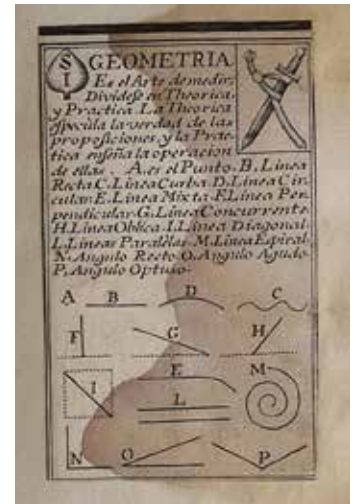 SI GEOMETRIA.
Es el Arte de medir;
Dividese en Theorica,
y Practica. La Theorica
especula la verdad de las
proposiciones, y la Prac-
tica enseña la operacion
de ellas. A. es el Punto. B. Linea
Recta. C. Linea Curba. D. Linea Cir-
cular. E. Linea Mixta. F. Linea Per-
pendicular. G. Linea Concurrente.
H. Linea Oblica. I. Linea Diagonal.
L. Lineas Paralelas. M. Linea Espiral.
N. Angulo Recto. O. Angulo Agudo.
P. Angulo Optuso.
A B D C
F G H
I E M
L
N O P